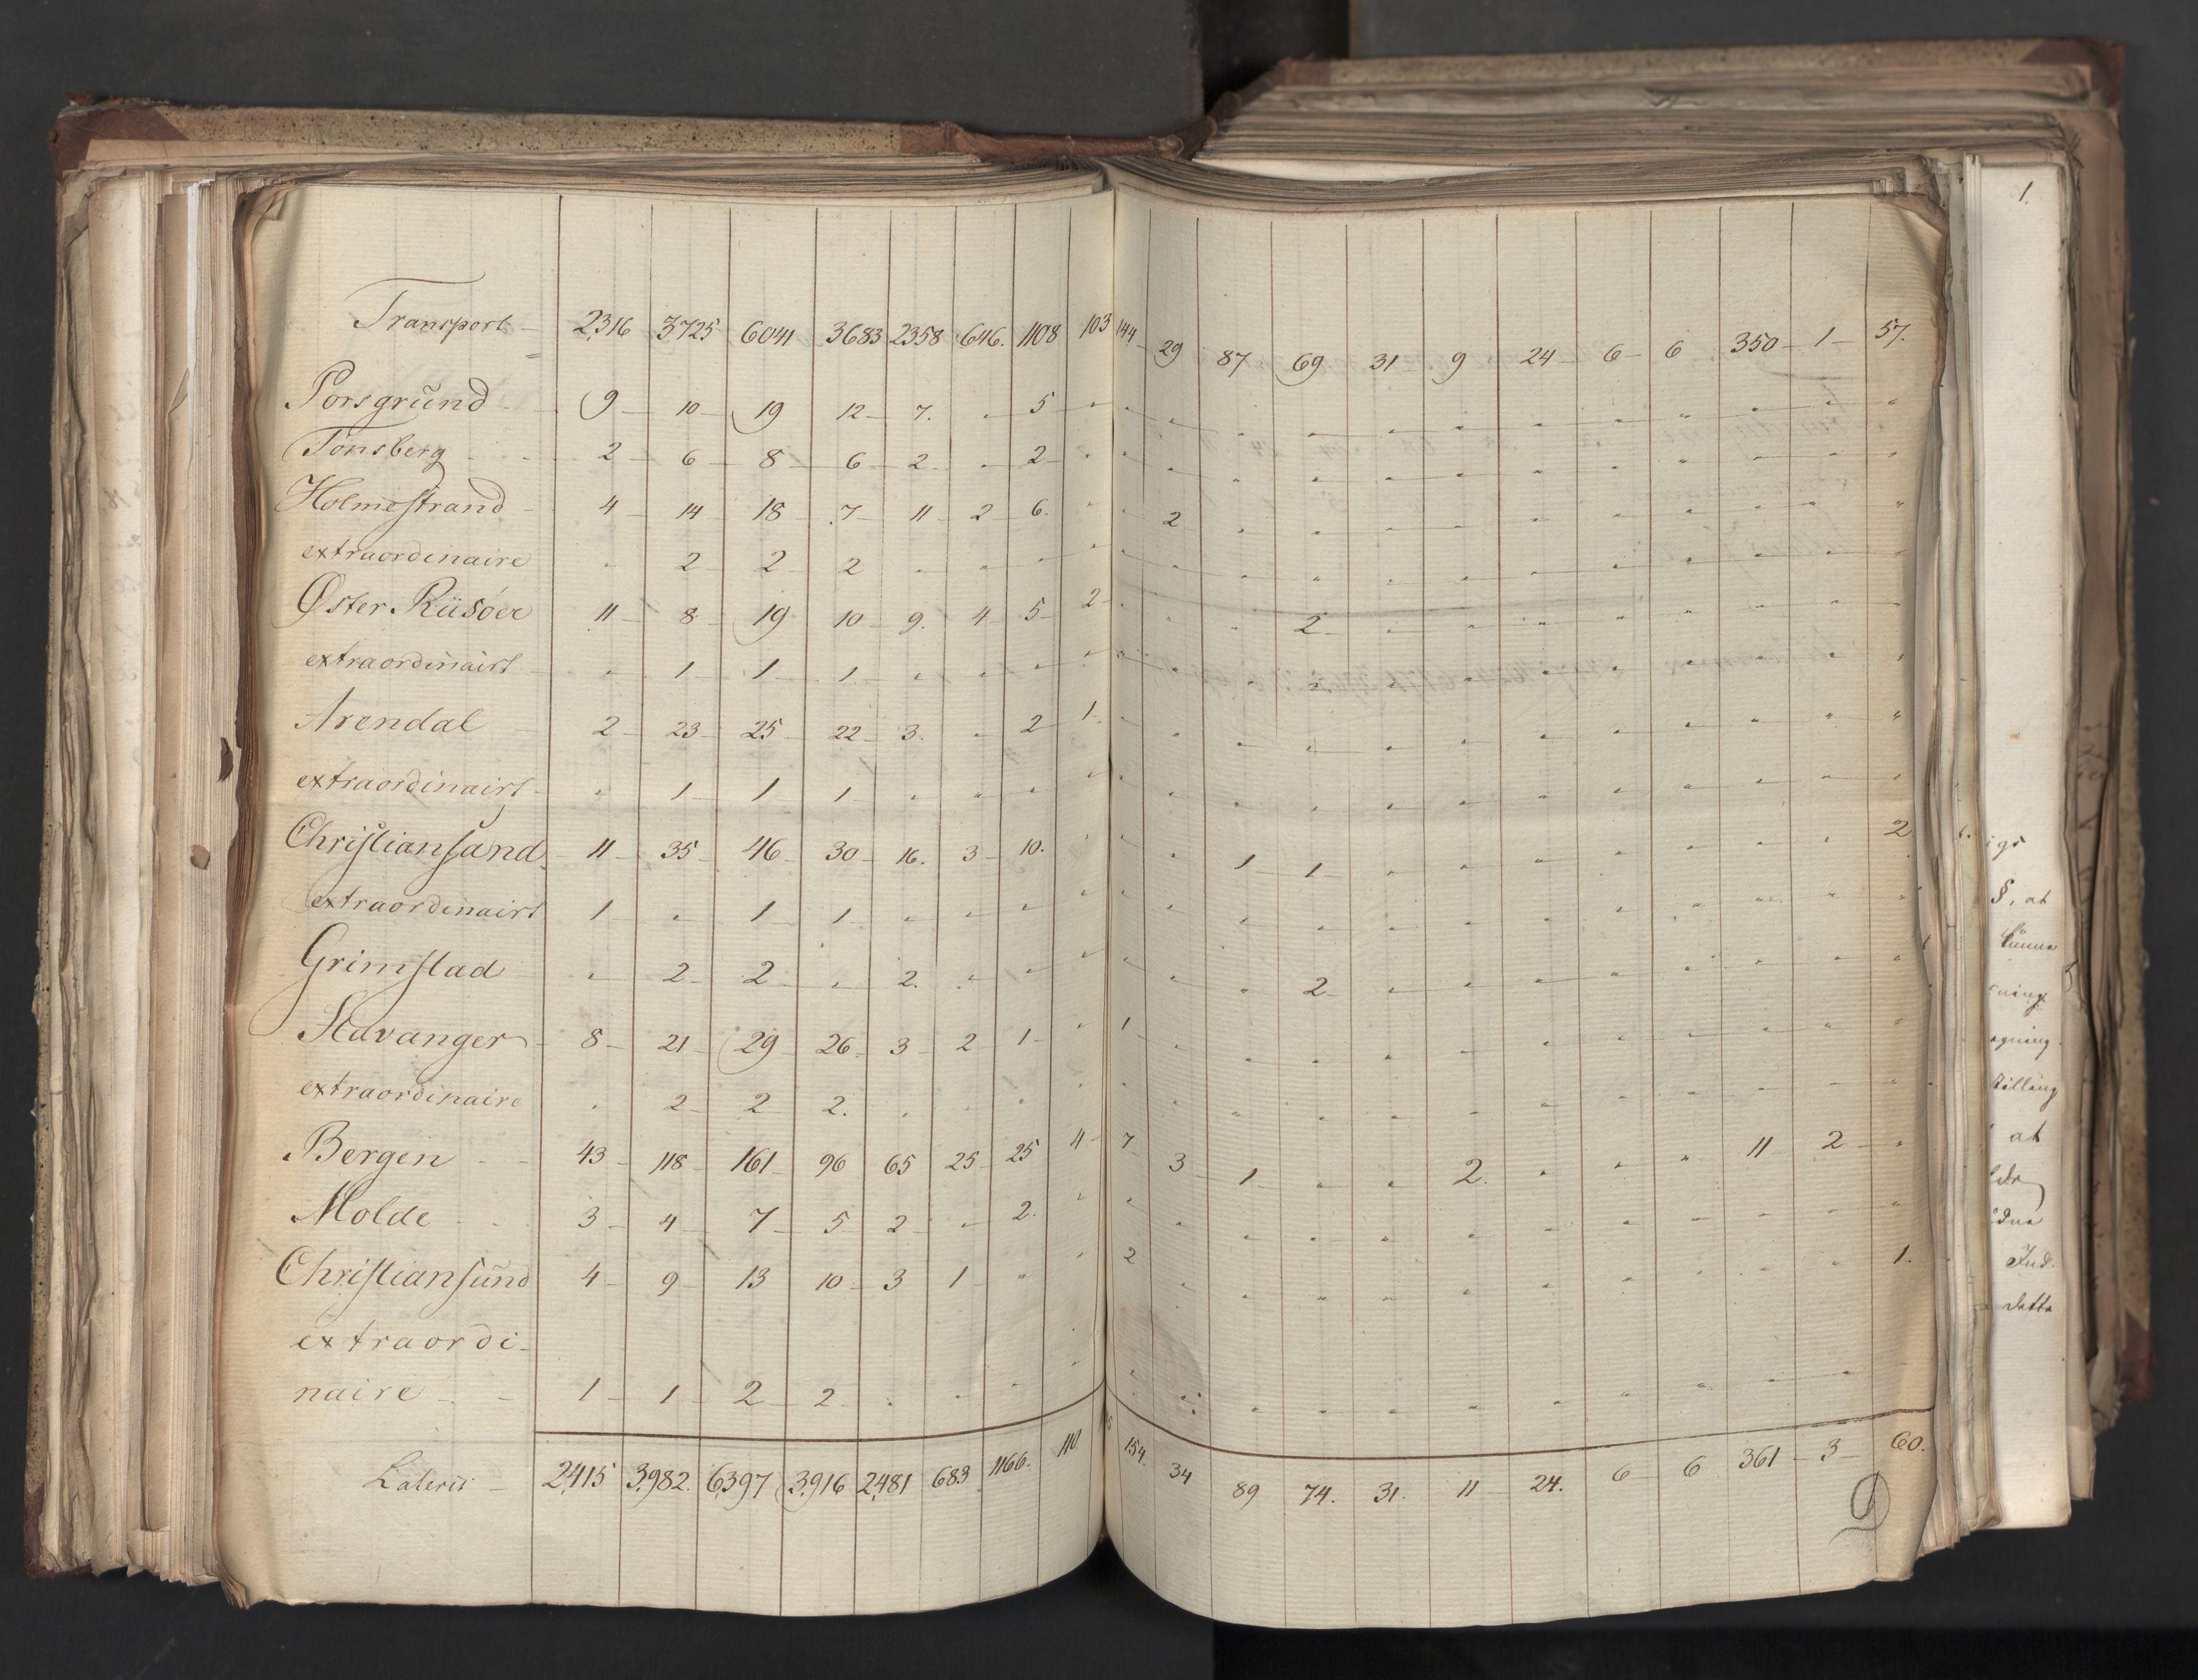 Transport 2316 3725 6041 3683 2358 646. 1108 103 144 29 87 69 31 9 24 6 6 350 1 57.
Porsgrund 9 10 19 12 7. " 5 " " " " " " " " " " " " "
Tonsberg 2 6 8 6 2 " 2 " " " " " " " " " " " " "
Holmestrand 4 14 18 7 11 2 6. " " 2 " " " " " " " " " "
extraordinaire " 2 2 2 " " " " " " " " " " " " " " " "
Øster Riisöer 11 8 19 10 9. 4 5 2 " " " 2 " " " " " " " "
extraordinairt " 1 1 1 " " " " " " " " " " " " " " " "
Arendal 2 23 25 22 3. " 2 1. " " " " " " " " " " " "
extraordinairt " 1 1 1 " " " " " " " " " " " " " " " "
Christiansand 11 35 46 30 16. 3 10. " " " 1 1 " " " " " " " 2
extraordinairt 1 " 1 1 " " " " " " " " " " " " " " " "
Grimstad " 2 2 " 2. " " " " " " 2 " " " " " " " "
Stavanger 8 21 29 26 3 2 1 " 1 " " " " " " " " " " "
extraordinaire " 2 2 2. " " " " " " " " " " " " " " " "
Bergen 43 118 161 96 65 25 25 4 7 3 1 " " 2. " " " 11 2 "
Molde 3 4 7 5 2 " 2. " " " " " " " " " " " " "
Christiansund 4 9 13 10 3 1 " " 2 " " " " " " " " " " 1.
extraordi-
naire 1 1 2 2 " " " " " " " " " " " " " " "
Lateris 2415 3982. 6397 3916 2481 683 1166. 110 154. 34 89 74. 31. 11 24. 6 6 361 3 60.
1.
§, at
kunne
at
Ind.
dette